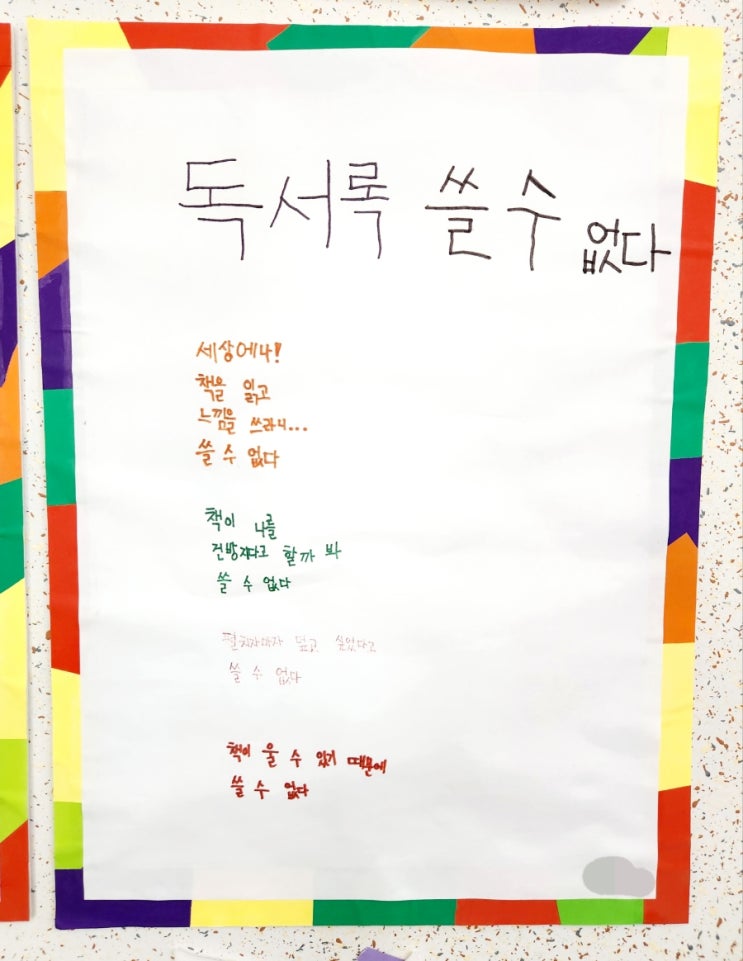 독서록 쓸 수 없다
세상에나!
책을 읽고
느낌을 쓰라니...
쓸 수 없다
책이 나를
건방지다고 할까 봐
쓸 수 없다
펼치자마자 덮고 싶었다고
쓸 수 없다
책이 울 수 있기 때문에
쓸 수 없다